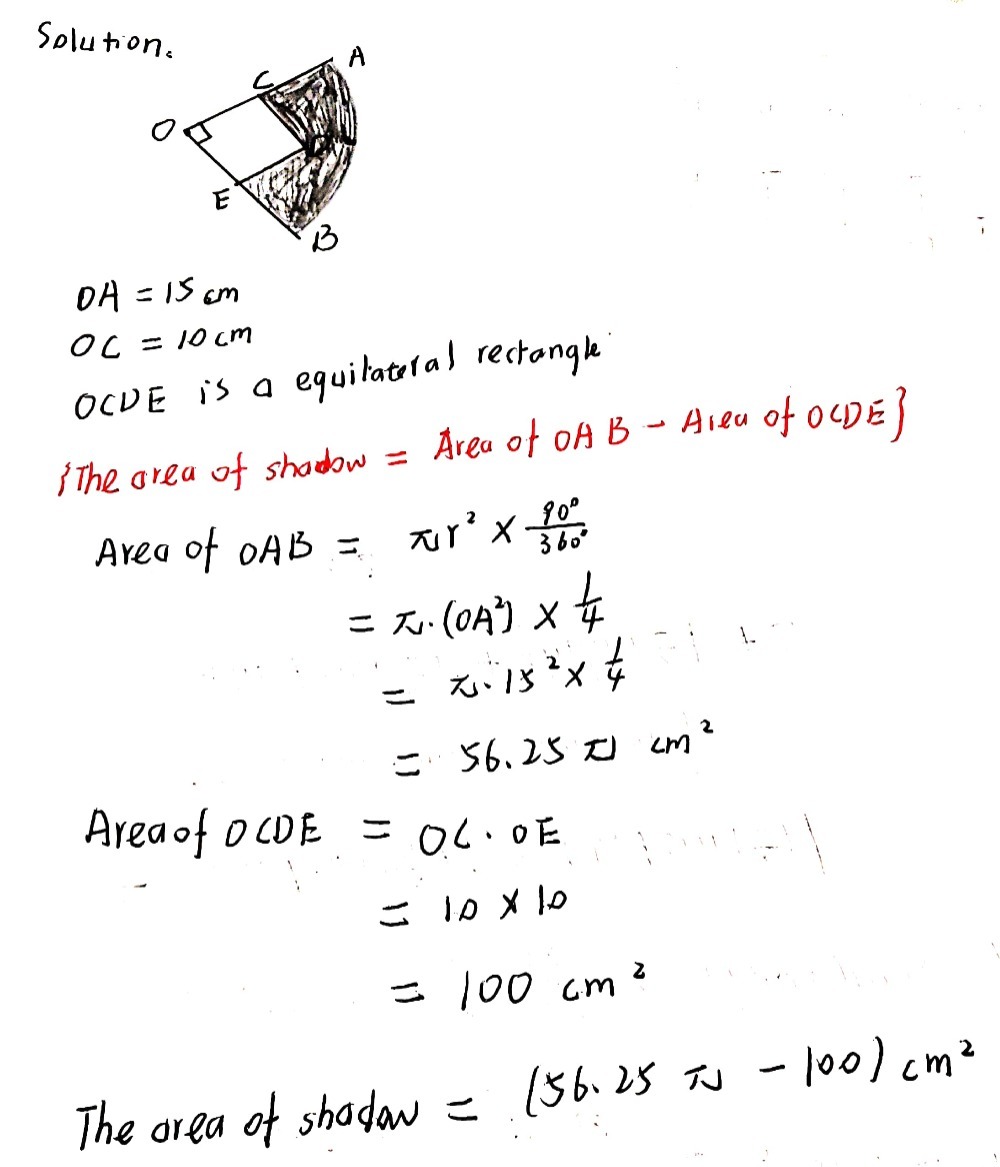 Solution.
A
C
O
E
B
OA = 15 cm
OC = 10 cm
OCDE is a equilateral rectangle
{The area of shadow = Area of OAB - Area of OCDE}
Area of OAB = πr² × 90°/360°
= π·(OA²) × 1/4
= π·15² × 1/4
= 56.25 π cm²
Area of OCDE = OC · OE
= 10 × 10
= 100 cm²
The area of shadow = (56.25 π - 100) cm²